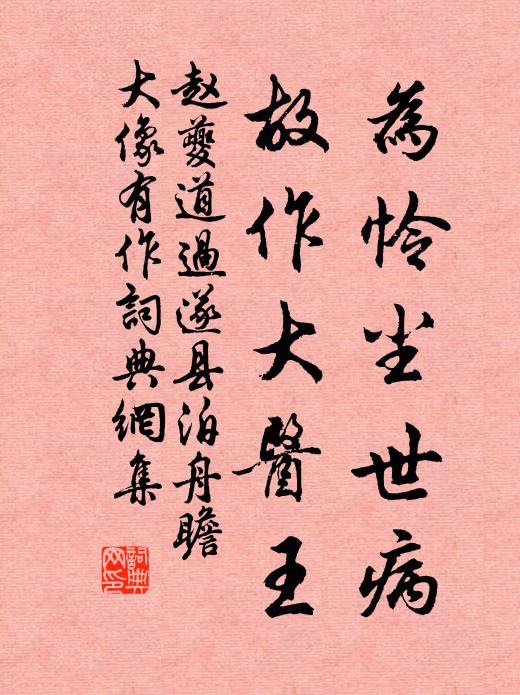 為怜尘世病
故作大醫王
赵夔道過遂县泊舟瞻
大像有作詞典網集
詞典網印